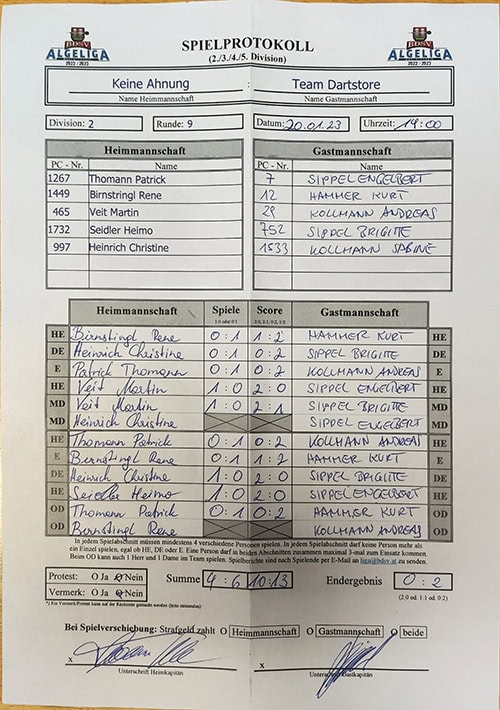 BDSV
ALGELIGA
2022 / 2023
SPIELPROTOKOLL
(2./3./4./5. Division)
BDSV
ALGELIGA
2022 / 2023
Keine Ahnung : Team Dartstore
Name Heimmannschaft Name Gastmannschaft
Division: 2 Runde: 9 Datum: 20.01.23 Uhrzeit: 19:00
Heimmannschaft Gastmannschaft
PC - Nr. Name PC - Nr. Name
1267 Thomann Patrick 7 SIPPEL ENGELBERT
1449 Birnstringl Rene 12 HAMMER KURT
465 Veit Martin 29 KOLLMANN ANDREAS
1732 Seidler Heimo 752 SIPPEL BRIGITTE
997 Heinrich Christine 1533 KOLLMANN SABINE
Heimmannschaft Spiele Score Gastmannschaft
1:0 oder 0:1 2:0, 2:1, 0:2, 1:2
HE Birnstingl Rene 0:1 1:2 HAMMER KURT HE
DE Heinrich Christine 0:1 0:2 SIPPEL BRIGITTE DE
E Patrick Thomann 0:1 0:2 KOLLMANN ANDREAS E
HE Veit Martin 1:0 2:0 SIPPEL ENGELBERT HE
MD Veit Martin 1:0 2:1 SIPPEL BRIGITTE MD
MD Heinrich Christine SIPPEL ENGELBERT MD
HE Thomann Patrick 0:1 0:2 KOLLMANN ANDREAS HE
E Birnstingl Rene 0:1 1:2 HAMMER KURT E
DE Heinrich Christine 1:0 2:0 SIPPEL BRIGITTE DE
HE Seidler Heimo 1:0 2:0 SIPPEL ENGELBERT HE
OD Thomann Patrick 0:1 0:2 HAMMER KURT OD
OD Birnstingl Rene KOLLMANN ANDREAS OD
In jedem Spielabschnitt müssen mindestens 4 verschiedene Personen spielen. In jedem Spielabschnitt darf keine Person mehr als
ein Einzel spielen, egal ob HE, DE oder E. Eine Person darf in beiden Abschnitten zusammen maximal 3-mal zum Einsatz kommen.
Beim OD kann auch 1 Herr und 1 Dame im Team spielen. Spielberichte sind nach Spielende per E-Mail an liga@bdsv.at zu senden.
Protest: O Ja O Nein Summe 4:6 10:13 Endergebnis 0:2
Vermerk: O Ja O Nein (2:0 od. 1:1 od. 0:2)
*) Ein Vermerk/Protest kann auf der Rückseite gemacht werden (bitte ankreuzen)
Bei Spielverschiebung: Strafgeld zahlt O Heimmannschaft O Gastmannschaft O beide
x x
Unterschrift Heimkapitän Unterschrift Gastkapitän